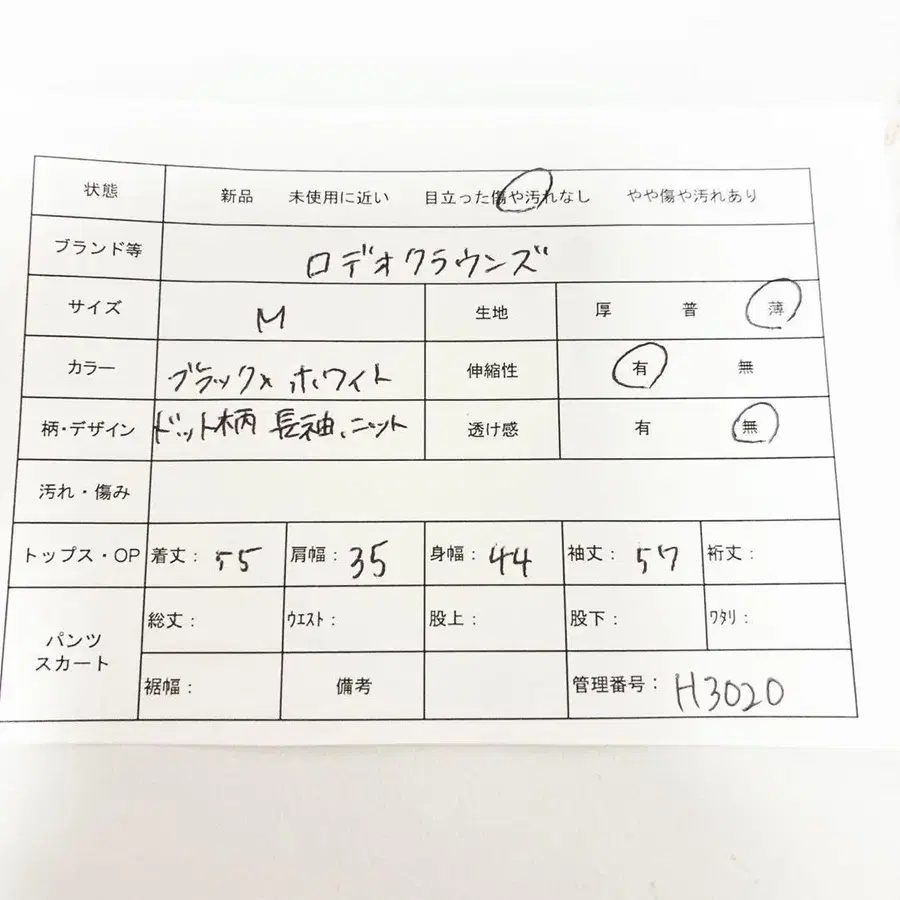 状態 新品 未使用に近い 目立った傷や汚れなし やや傷や汚れあり
ブランド等 ロデオクラウンズ
サイズ M 生地 厚 普 薄
カラー ブラック×ホワイト 伸縮性 有 無
柄・デザイン ドット柄 長袖、ニット 透け感 有 無
汚れ・傷み
トップス・OP 着丈: 55 肩幅: 35 身幅: 44 袖丈: 57 裄丈:
パンツ スカート 総丈: ウエスト: 股上: 股下: ワタリ:
裾幅: 備考 管理番号: H3020